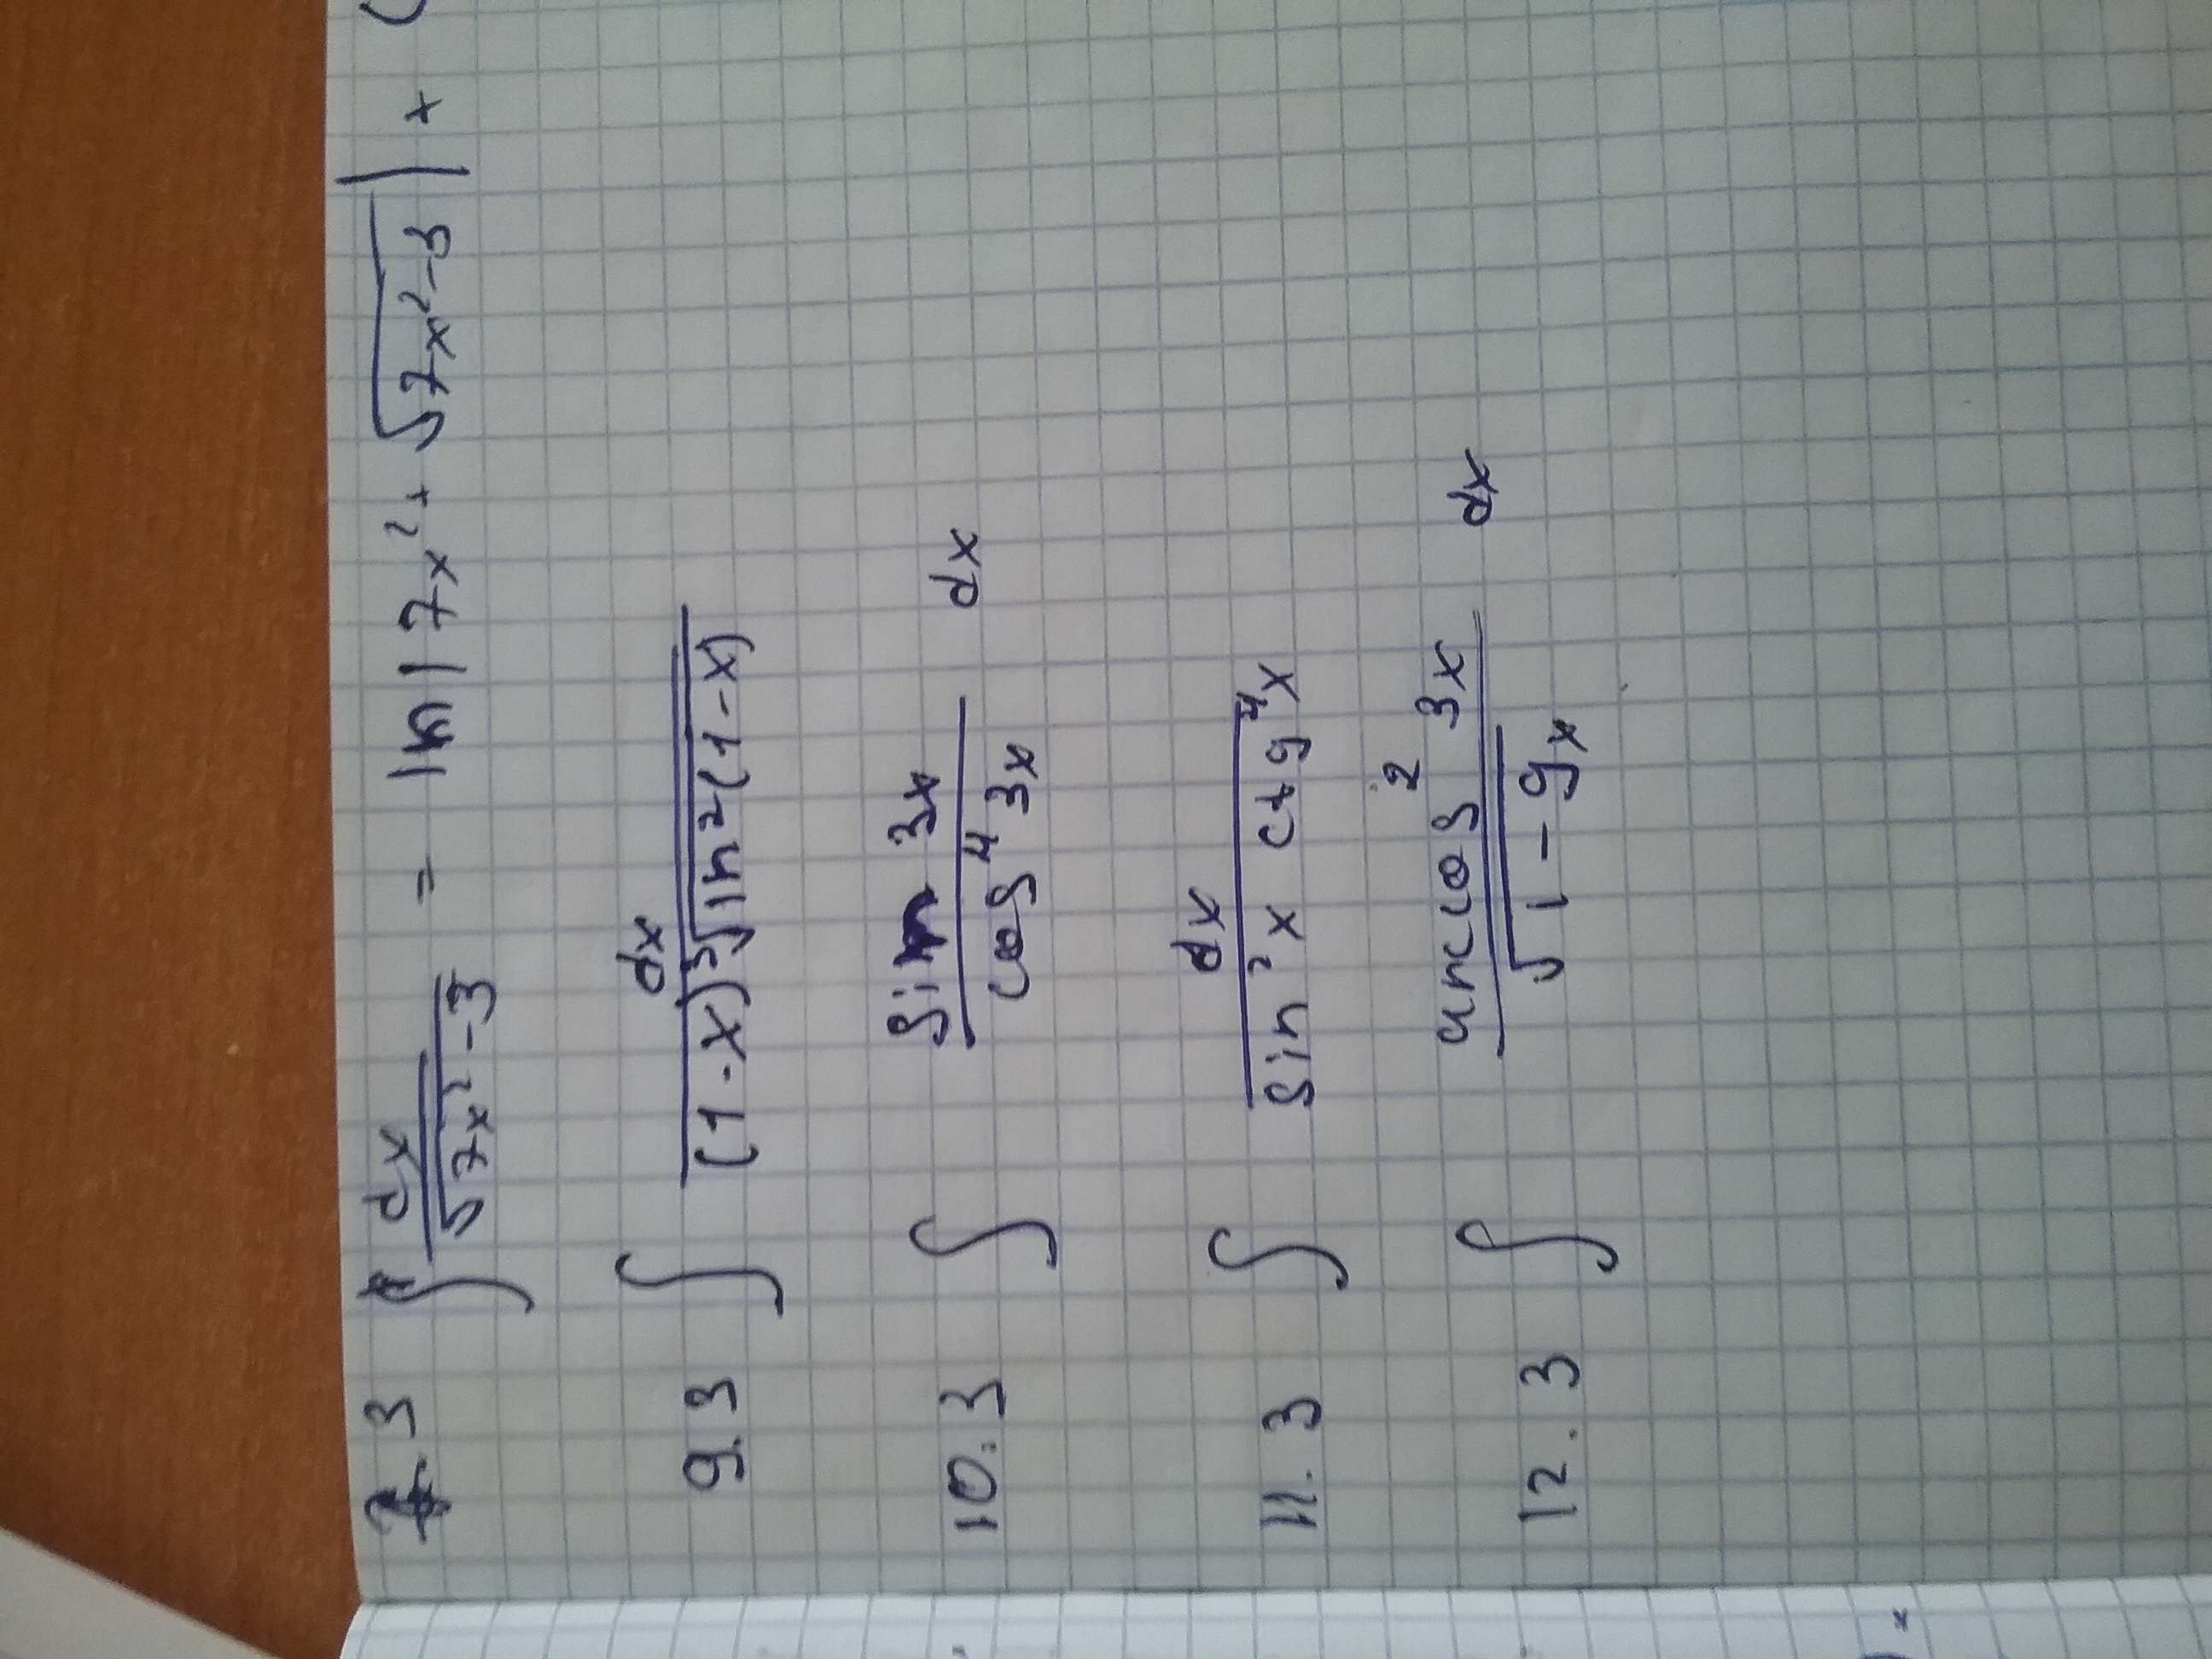 7.3 ∫ dx / √(7x² - 3) = ln | 7x² + √(7x² - 3) | +
9.3 ∫ dx / ((1 - x) ³√(ln²(1 - x)))
10.3 ∫ sin 3x / cos⁴ 3x dx
11.3 ∫ dx / (sin² x ctg⁴ x)
12.3 ∫ arccos² 3x / √(1 - 9x) dx